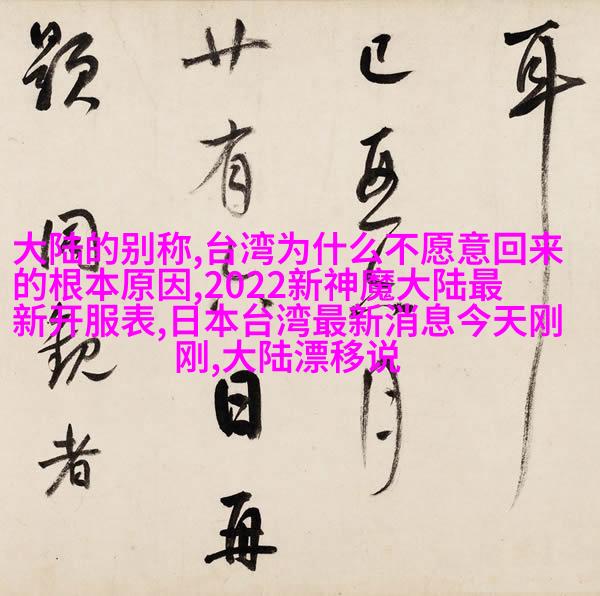 大陆的别称,台湾为什么不愿意回来
的根本原因,2022新神魔大陆最
新开服表,日本台湾最新消息今天刚
刚,大陆漂移说
耳
已月
廿有日再
題觀者